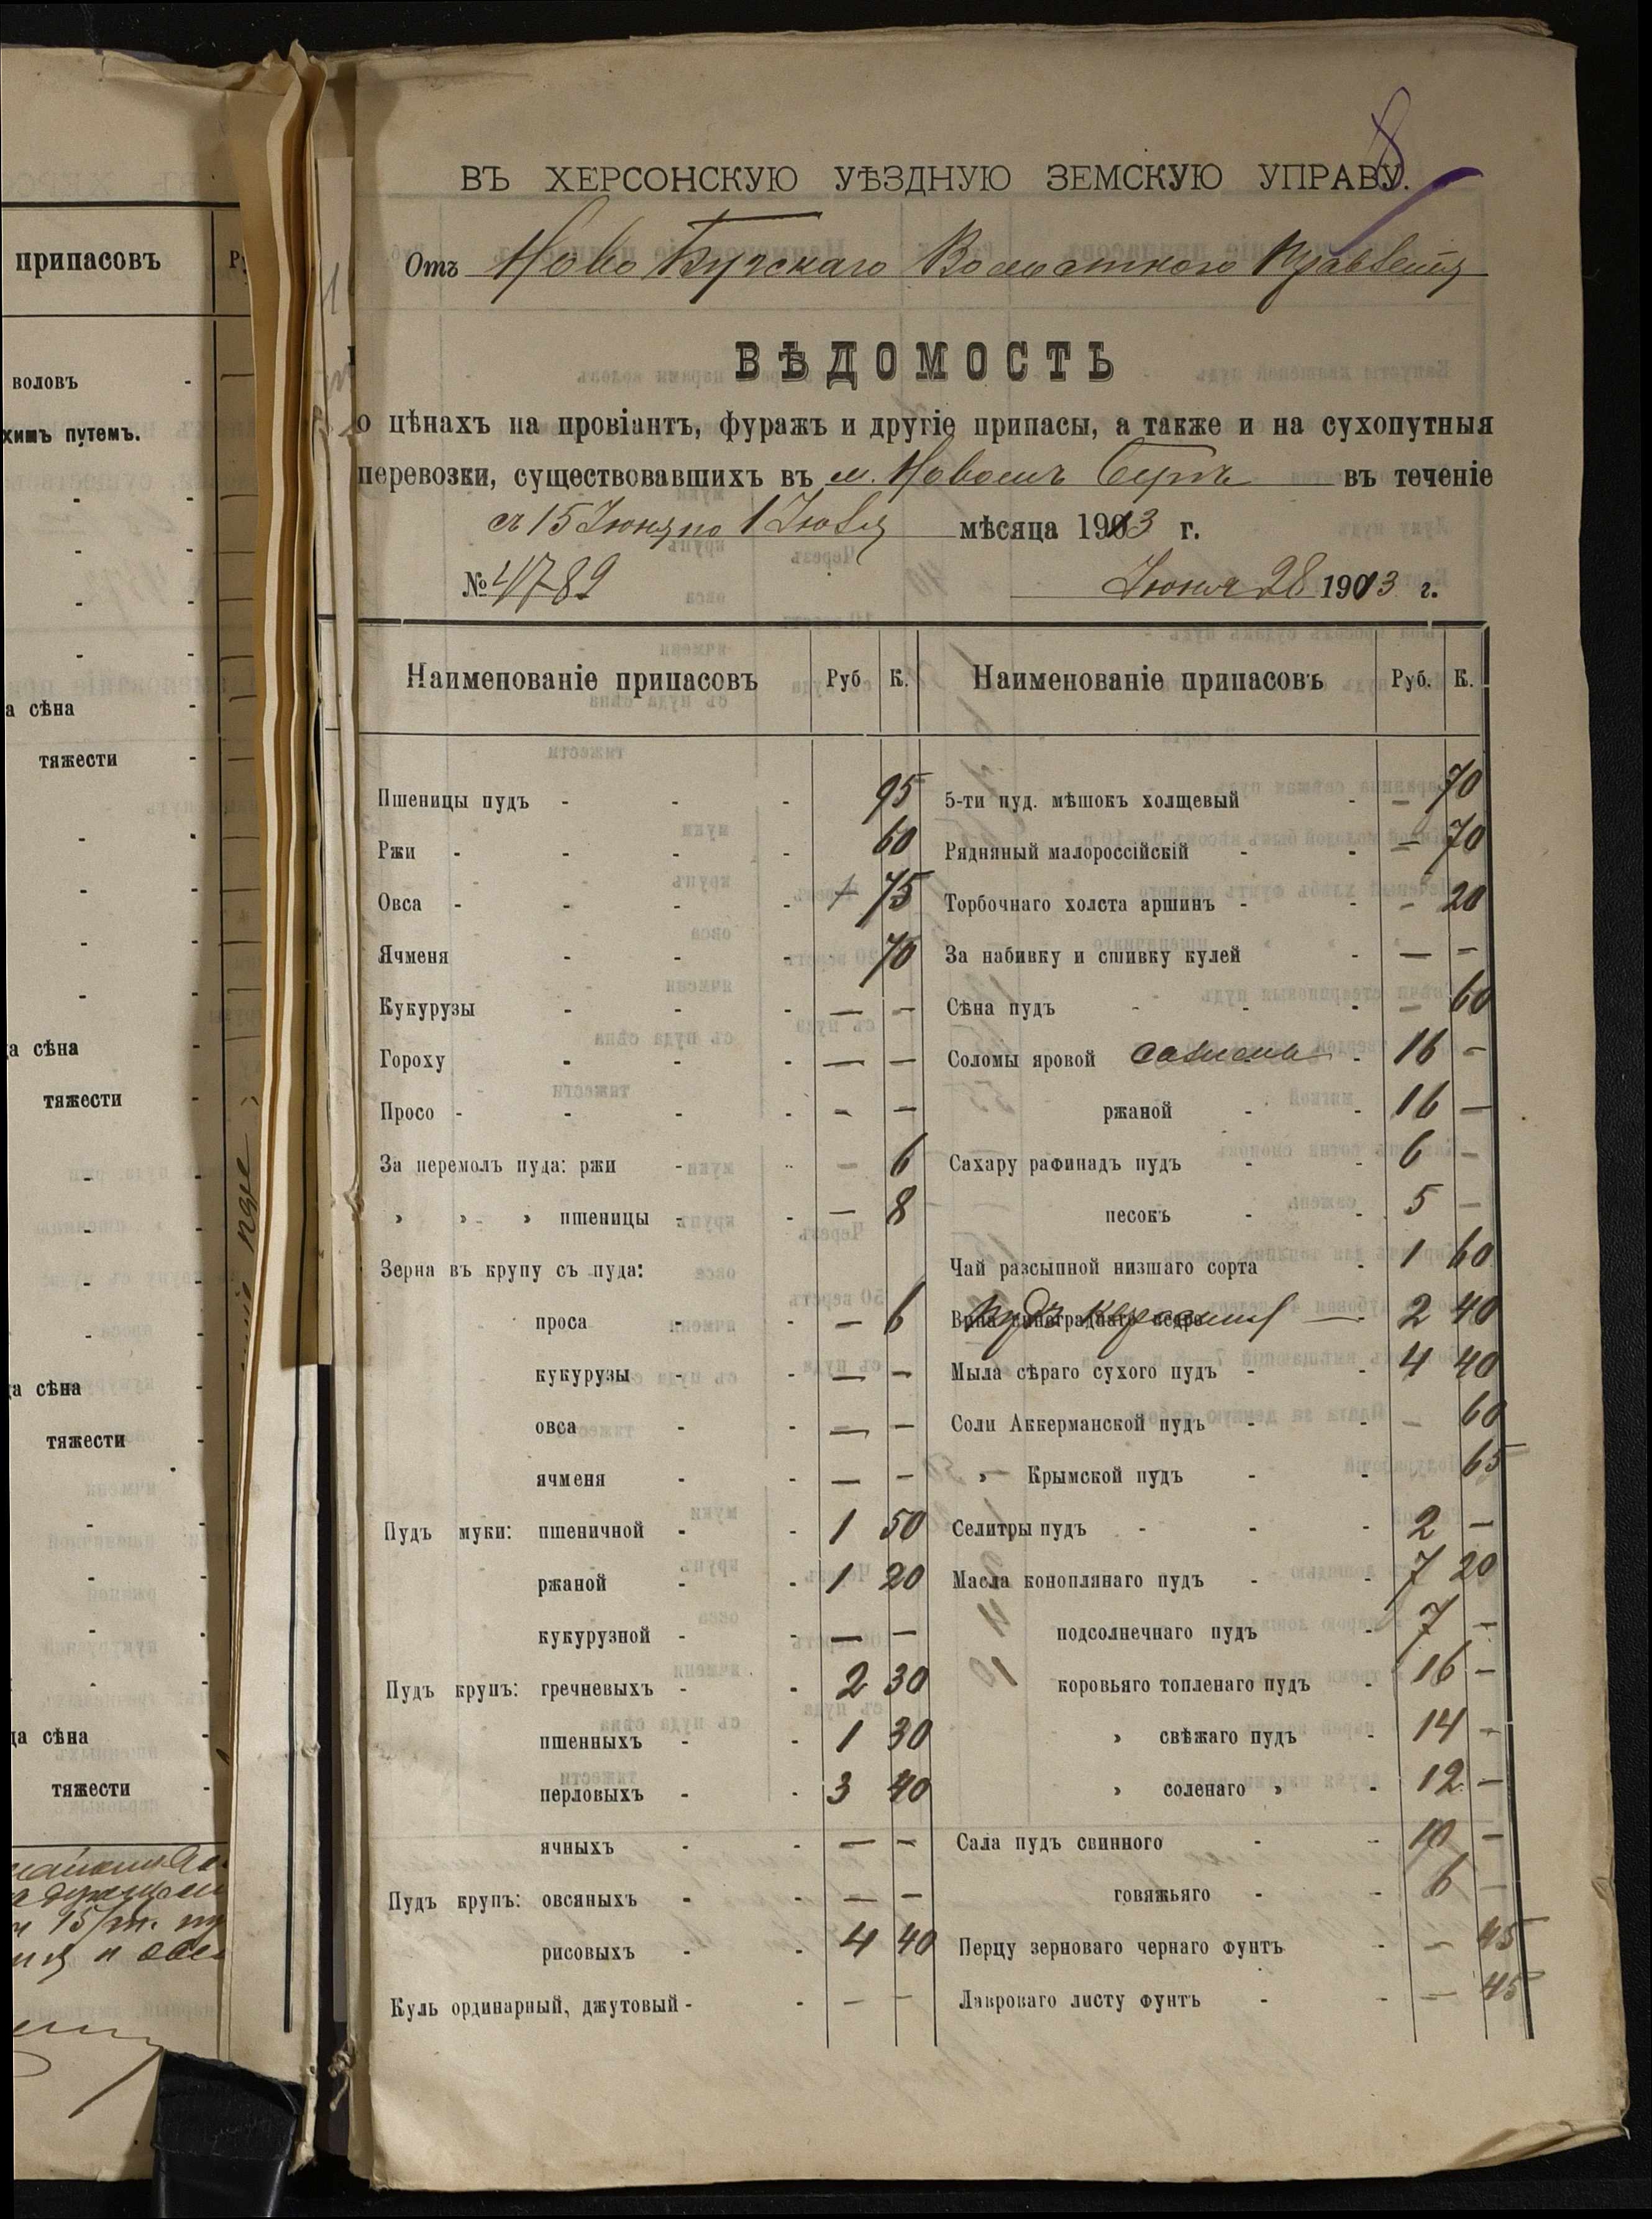 8
ВЪ ХЕРСОНСКУЮ УѢЗДНУЮ ЗЕМСКУЮ УПРАВУ.
Отъ Ново Бугскаго Волостного Правленія
ВѢДОМОСТЬ
о цѣнахъ на провіантъ, фуражъ и другіе припасы, а также и на сухопутныя
перевозки, существовавшихъ въ м. Новомъ Бугѣ въ теченіе
съ 15 Іюня по 1 Іюля мѣсяца 1913 г.
№ 4789 Іюня 28 1913 г.
Наименованіе припасовъ Руб К. Наименованіе припасовъ Руб. К.
Пшеницы пудъ - - - 95 5-ти пуд. мѣшокъ холщевый - — 70
Ржи - - - - 60 Рядняный малороссійскій - - — 70
Овса - - - - 75 Торбочнаго холста аршинъ - - — 20
Ячменя - - - 70 За набивку и сшивку кулей - — —
Кукурузы - - - — — Сѣна пудъ - - - — 60
Гороху - - - — — Соломы яровой сажень - 16 —
Просо - - - - — — ржаной - - 16 —
За перемолъ пуда: ржи - - — 6 Сахару рафинадъ пудъ - - 6 —
» » » пшеницы - - — 8 песокъ - - 5 —
Зерна въ крупу съ пуда: Чай разсыпной низшаго сорта - 1 60
проса - - — 6 пудъ керосина — 2 40
кукурузы - - — — Мыла сѣраго сухого пудъ - - 4 40
овса - - — — Соли Аккерманской пудъ - - — 60
ячменя - - — — » Крымской пудъ - - 65
Пудъ муки: пшеничной - - 1 50 Селитры пудъ - - - 2 —
ржаной - - 1 20 Масла коноплянаго пудъ - - 7 20
кукурузной - - — — подсолнечнаго пудъ - 7 —
Пудъ крупъ: гречневыхъ - - 2 30 коровьяго топленаго пудъ - 16 —
пшенныхъ - - 1 30 » свѣжаго пудъ - 14 —
перловыхъ - - 3 40 » соленаго » - 12 —
ячныхъ - - — — Сала пудъ свинного - - 10 —
Пудъ крупъ: овсяныхъ - - — — говяжьяго - - 6 —
рисовыхъ - - 4 40 Перцу зерноваго чернаго фунтъ - — 45
Куль ординарный, джутовый - - — — Лавроваго листу фунтъ - - — 45
припасовъ
воловъ -
химъ путемъ.
а сѣна -
тяжести -
а сѣна -
тяжести -
а сѣна -
тяжести -
а сѣна -
тяжести -